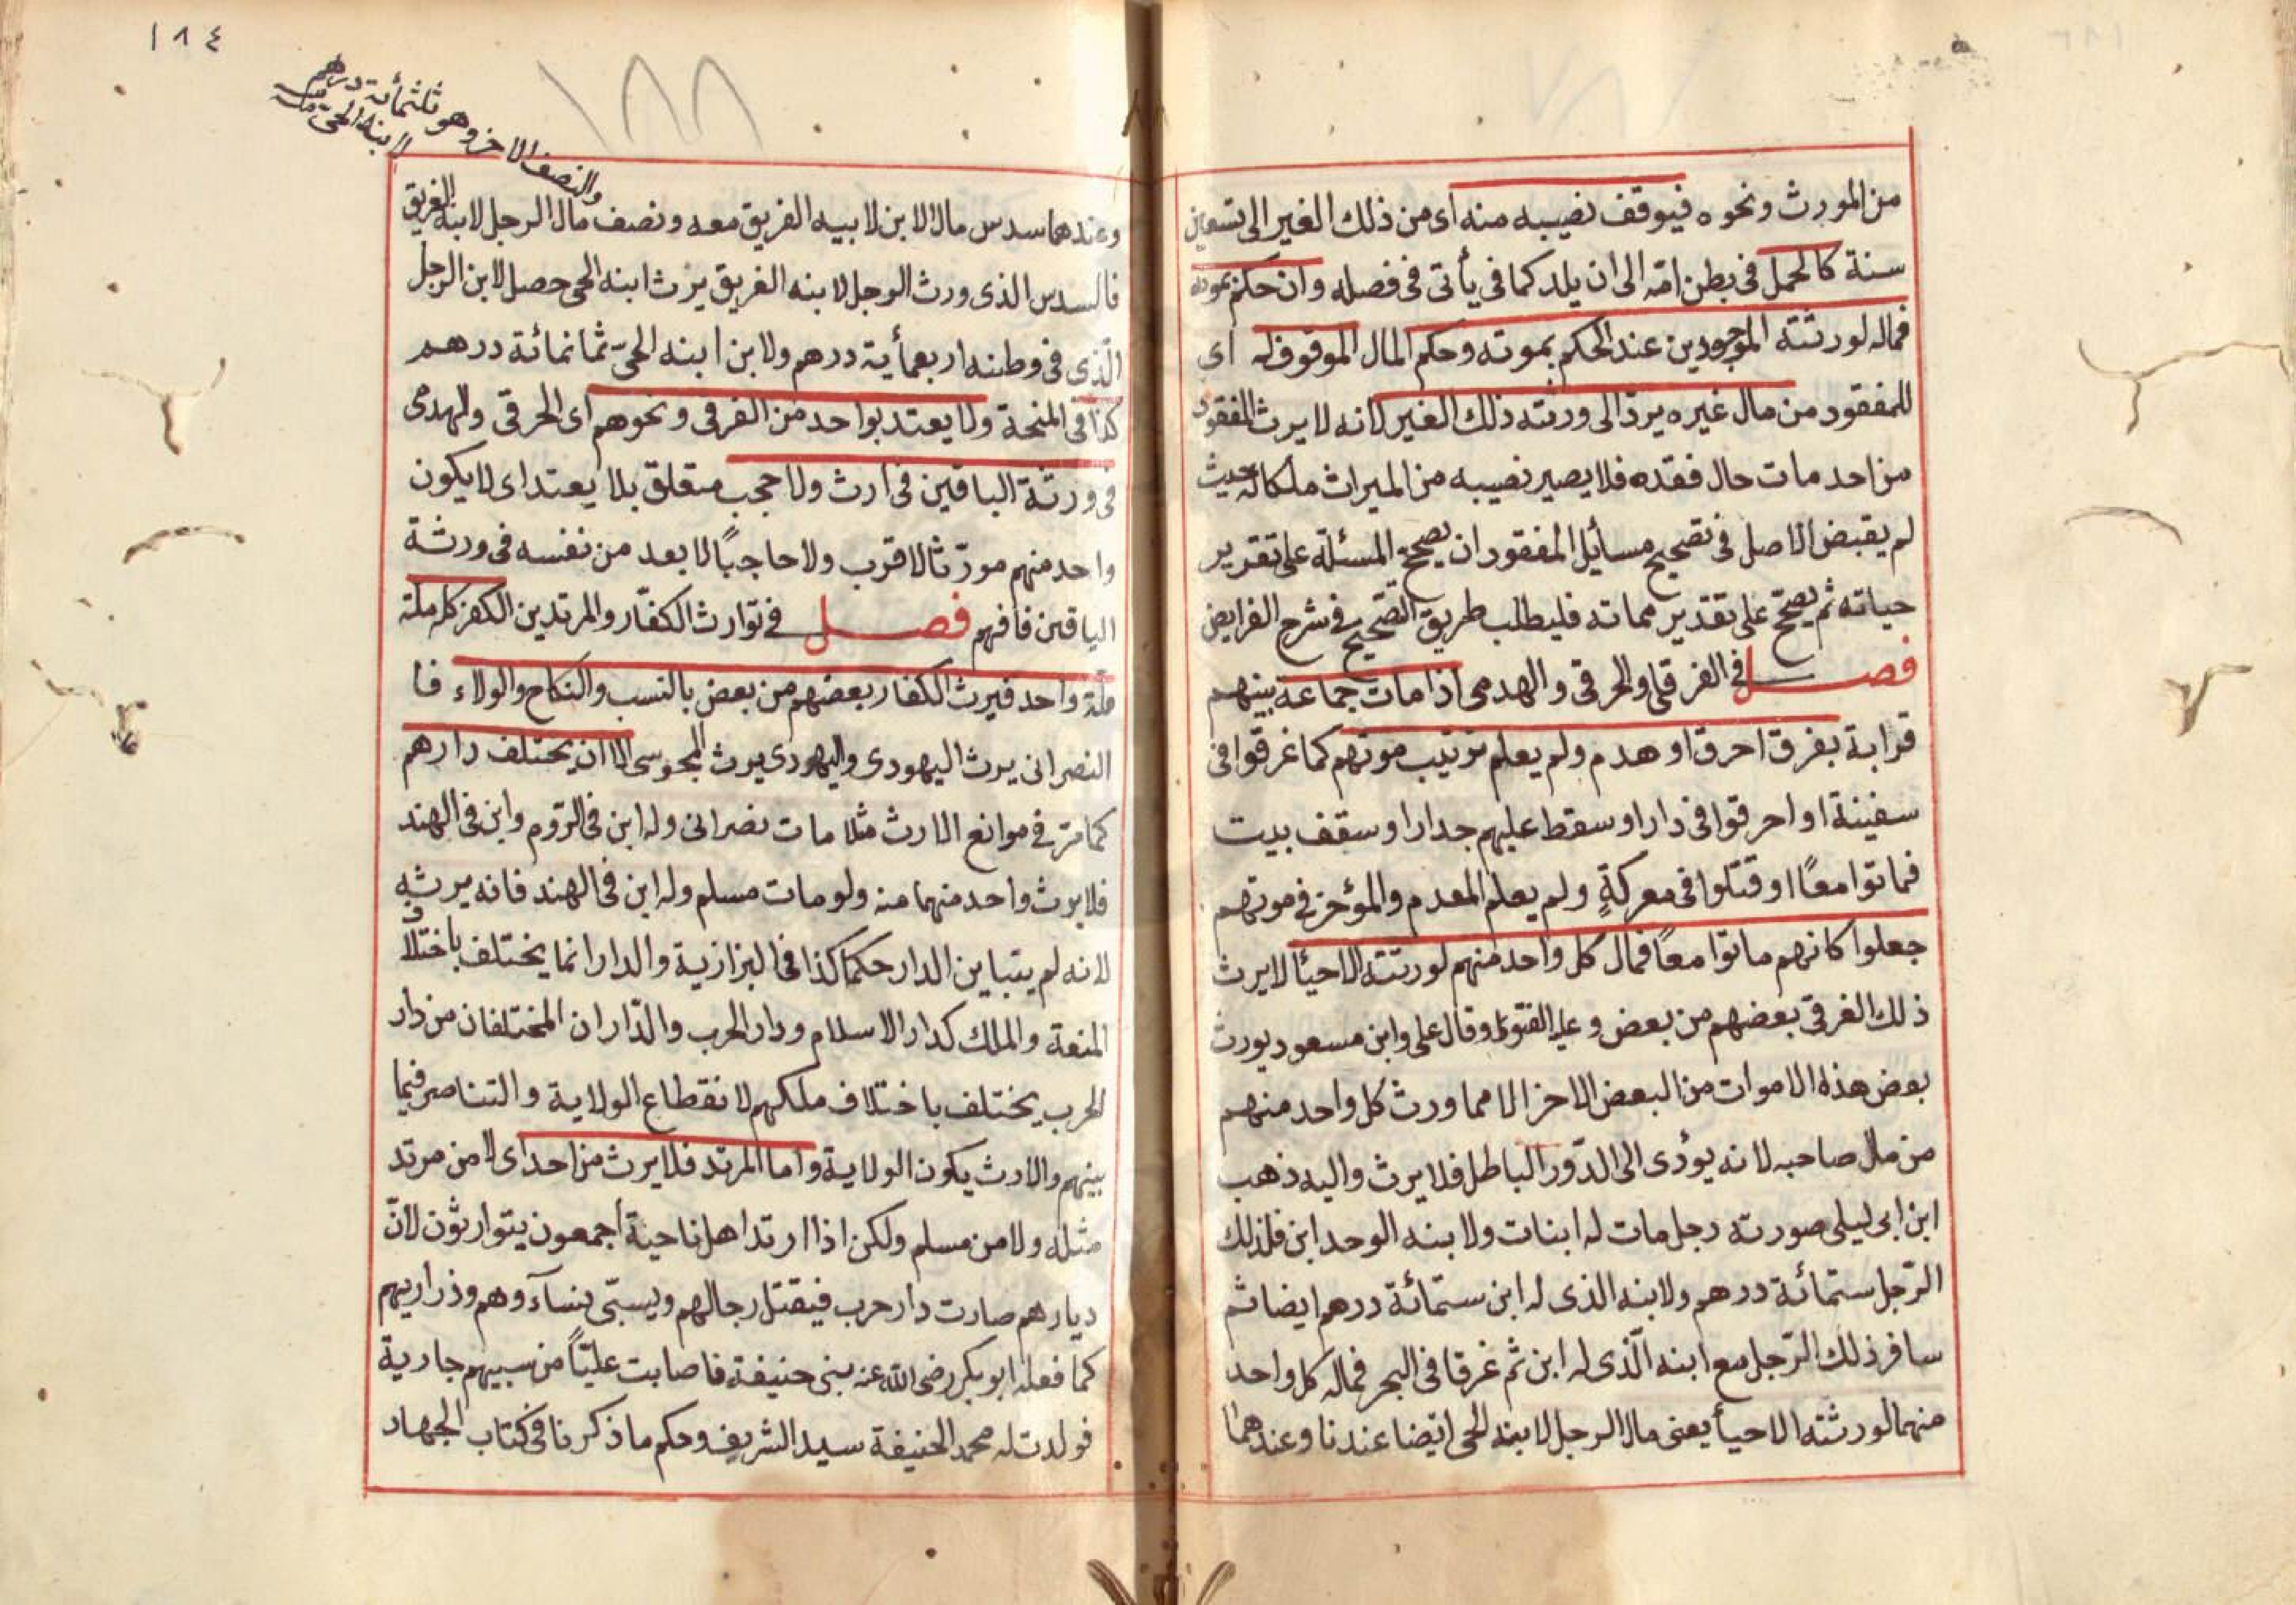 من المورث ونحوه فيوقف نصيبه منه اى من ذلك الغير الى تسعين
سنة كالحمل فى بطن امّه الى ان يلد كما فى يأتى فى فصله وان حكم بموته
فماله لورثته الموجودين عند الحكم بموته وحكم المال الموقوف له اى
للمفقود من مال غيره يردّ الى ورثته ذلك الغير لانه لا يرث المفقود
من احد مات حال فقده فلا يصير نصيبه من الميراث ملكا له حيث
لم يقبض الاصل فى تصحيح مسائل المفقود ان يصحح المسئلة على تقدير
حياته ثم يصحّح على تقدير مماته فليطلب طريق التصحيح فى شرح الفرايض
فصل فى الفرقى والحرقى والهدمى اذا مات جماعة بينهم
قرابة بغرق احرق او هدم ولم يعلم ترتيب موتهم كما غرقوا فى
سفينة او احرقوا فى دار او سقط عليهم جدار او سقف بيت
فماتوا معًا او قتلوا فى معركةٍ ولم يعلم المعدم والمؤخر فى موتهم
جعلوا كانهم ماتوا معاً فمال كل واحد منهم لورثته الاحيأ لا يرث
ذلك الغرقى بعضهم من بعض وعليه الفتوى وقال على وابن مسعود يورث
بعض هذه الاموات من البعض الاخر الا مما ورث كل واحد منهم
من مال صاحبه لانه يؤدى الى الدّور الباطل فلا يرث واليه ذهب
ابن ابى ليلى صورته رجل مات له ابنات ولابنه الوحد ابن فلذلك
الرّجل ستمائة درهم ولابنه الذى له ابن ستمّائة درهم ايضا ثم
سافر ذلك الرّجل مع ابنه الّذى له ابن ثم غرقا فى البحر فماله كل واحد
منهما لورثته الاحيأ يعنى مال الرجل لابنه الحى ايضا عندنا وعندهما
١٨٤
١٨٨
والنصف الاخر وهو ثلثمأئة درهم
لابنه الحى منه
وعندهما سدس مال الابن لابيه الغريق معه ونصف مال الرجل لابنه الغريق
فالسدس الذى ورث الرجل لابنه الغريق يرث ابنه الحى حصل لابن الرجل
الّذى فى وطنه اربعمأية درهم ولابن ابنه الحىّ ثمانمائة درهم
كذا فى المنحة ولا يعتد بواحد من الغرقى ونحوهم اى الحرقى والهدمى
فى ورثة الباقين فى ارث ولا حجب متعلق بلا يعتد اى لا يكون
واحد منهم مورّثا لاقرب ولا حاجبًا لابعد من نفسه فى ورثة
الياقين فافهم فصل فى توارث الكفّار والمرتدين الكفر كله ملة
ملّة واحد فيرث الكفار بعضهم من بعض بالنسب والنكاح والولاء فا
النصرانى يرث اليهودى واليهودى يرث المجوسى الا ان يختلف دارهم
كما مرّ فى موانع الارث مثلا مات نصرانى وله ابن فى الرّوم وابن فى الهند
فلا يرث واحد منهما منه ولو مات مسلم وله ابن فى الهند فانه يرثه
لانه لم يتباين الدار حكما كذا فى البزازية والدار انما يختلف باختلاف
المنعة والملك كدار الاسلام ودار الحرب والدّاران المختلفان من دار
الحرب يختلف باختلاف ملكهم لانقطاع الولاية والتناصر فيما
بينهم والارث يكون الولاية واما المرتد فلا يرث من احد اى لا من مرتد
مثله ولا من مسلم ولكن اذا ارتد اهل ناحية أجمعون يتوارثون لانّ
ديارهم صارت دار حرب فيقتل رجالهم ويسبّى نساءوهم وذراريهم
كما فعله ابو بكر رضى الله عنه ببنى حنيفة فاصابت عليّاً من سبيهم جارية
فولدت له محمد الحنيفة سيد الشريف وحكم ما ذكرنا فى كتاب الجهاد